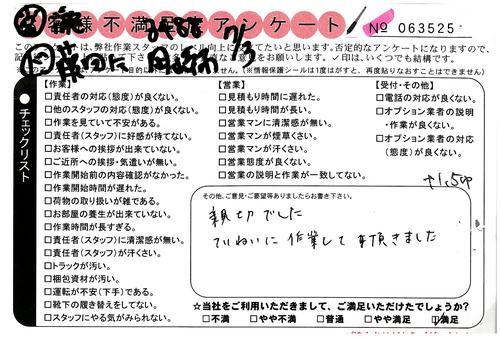 様不満足アンケート
No 063525
このアンケートは、弊社作業スタッフのレベル向上に役立てたいと思います。否定的なアンケートになりますので、
ご意見をお願いします。✓印は、いくつでも結構です。
(※情報保護シールは1度がすと、再度貼りなおすことはできません)
●チェックリスト
【作業】
□責任者の対応(態度)が良くない。
□他のスタッフの対応(態度)が良くない。
□作業を見ていて不安がある。
□責任者(スタッフ)に好感が持てない。
□お客様への挨拶が出来ていない。
□ご近所への挨拶・気遣いが無い。
□作業開始前の内容確認がなかった。
□作業開始時間が遅れた。
□荷物の取り扱いが雑である。
□お部屋の養生が出来ていない。
□作業時間が長すぎる。
□責任者(スタッフ)に清潔感が無い。
□責任者(スタッフ)が汗くさい。
□トラックが汚い。
□梱包資材が汚い。
□運転が不安(下手)である。
□靴下の履き替えをしてない。
□スタッフにやる気がみられない。
【営業】
□見積もり時間に遅れた。
□見積もり時間が長い。
□営業マンに清潔感が無い。
□営業マンが煙草くさい。
□営業マンが汗くさい。
□営業態度が良くない。
□営業の説明と作業が一致してない。
【受付・その他】
□電話の対応が良くない。
□オプション業者の説明
・作業が良くない。
□オプション業者の対応
(態度)が良くない。
その他、ご意見・ご要望等ありましたらお書き下さい。
親切でした
ていねいに作業して頂きました
☆当社をご利用いただきまして、ご満足いただけたでしょうか?
□不満 □やや不満 □普通 □やや満足 ☑満足